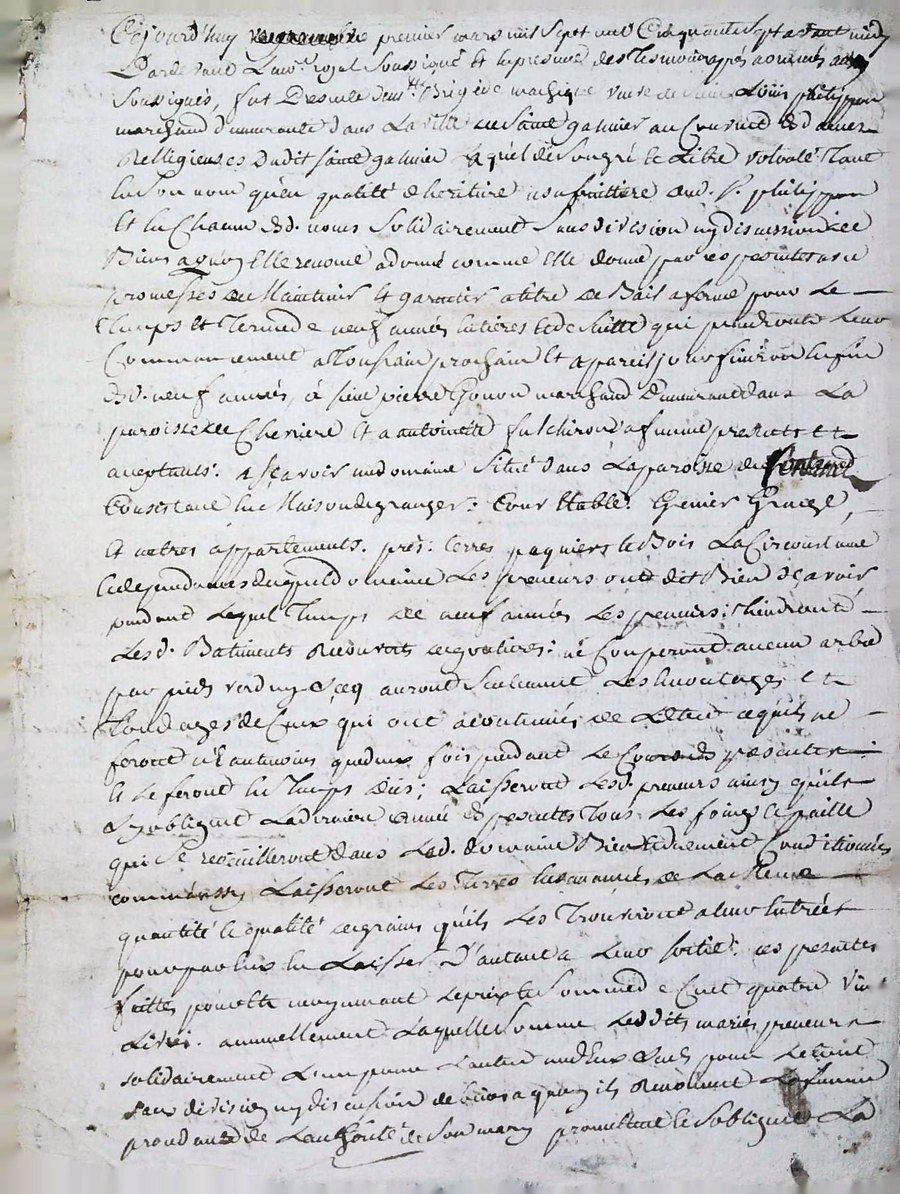 Cejourd'huy premier mars mil sept cent Cinquante sept avant midy
Pardevant Lenore. royal soussigné et en presence des Tesmoins après nommés
soussignés, fut presente dem.lle Brigide veuve de sieur Louis philippon
marchand demeurante dans La ville de saint galmier au Couvent des dames
Religieuses dudit saint galmier Laquelle de son gré et Libre volonté Tant
en son nom qu'en qualitté d'heritiere usufruittiere dud. S.r philippon
et en Chacun desd. noms solidairement sans division ny discussion de
Biens a quoy Elle renonce a donné comme Elle donne par ces presentes avec
promesses de Maintenir et garantir a titre de Bail a ferme pour Le
temps et Terme de neuf années entières et de suitte qui prendront Leur
Commencement a Toussaint prochain et a pareil jour finiront en fin
desd. neuf années, à sieur pierre marchand demeurant dans La
paroisse de Cheviere et a antoinette sa femme presents et
acceptants: a sçavoir un domaine situé dans La paroisse de
Consistant en Maison de granger: Cour Etable: Grenier Grange,
et autres appartements. prés: terres paquiers et Bois La Circonstance
et dependances duquel domaine Les preneurs ont dit Bien sçavoir
pendant Lequel Temps de neuf années Les preneurs: tiendront
Lesd. Batiments: ne Couperont aucun arbre
par pied verd ny secq auront seulement Les Emontages et
tondages de Ceux qui ont acoutumés de L'Etre ce qu'ils ne
feront n'Eantmoins que deux fois pendant Le Cours des presentes
et Le feront en Temps deus; Laisseront Lesd. preneurs ainsy qu'ils
s'y obligent La derniere année des presentes Tous Les foins et paille
qui se recuilleront dans Led. domaine Bien et duement Conditionnés
comme aussy Laisseront Les Terres Ensemancées de La Meme
quantité et qualité de grains qu'ils Les Trouveront a Leur Entrées
pour par Eux en Laisser D'autant a Leur sortie: ces presentes
faittes pour et moyennant Le prix et somme de Cent quatre vin
Livres. annuellement Laquelle somme Lesdits mariés preneurs
solidairement L'un pour L'autre un d'Eux seul pour Le tout
sans division ny discution de biens a quoy ils Renoncent La femme
procedante de L'authorité de son mary promettent et s'obligent La